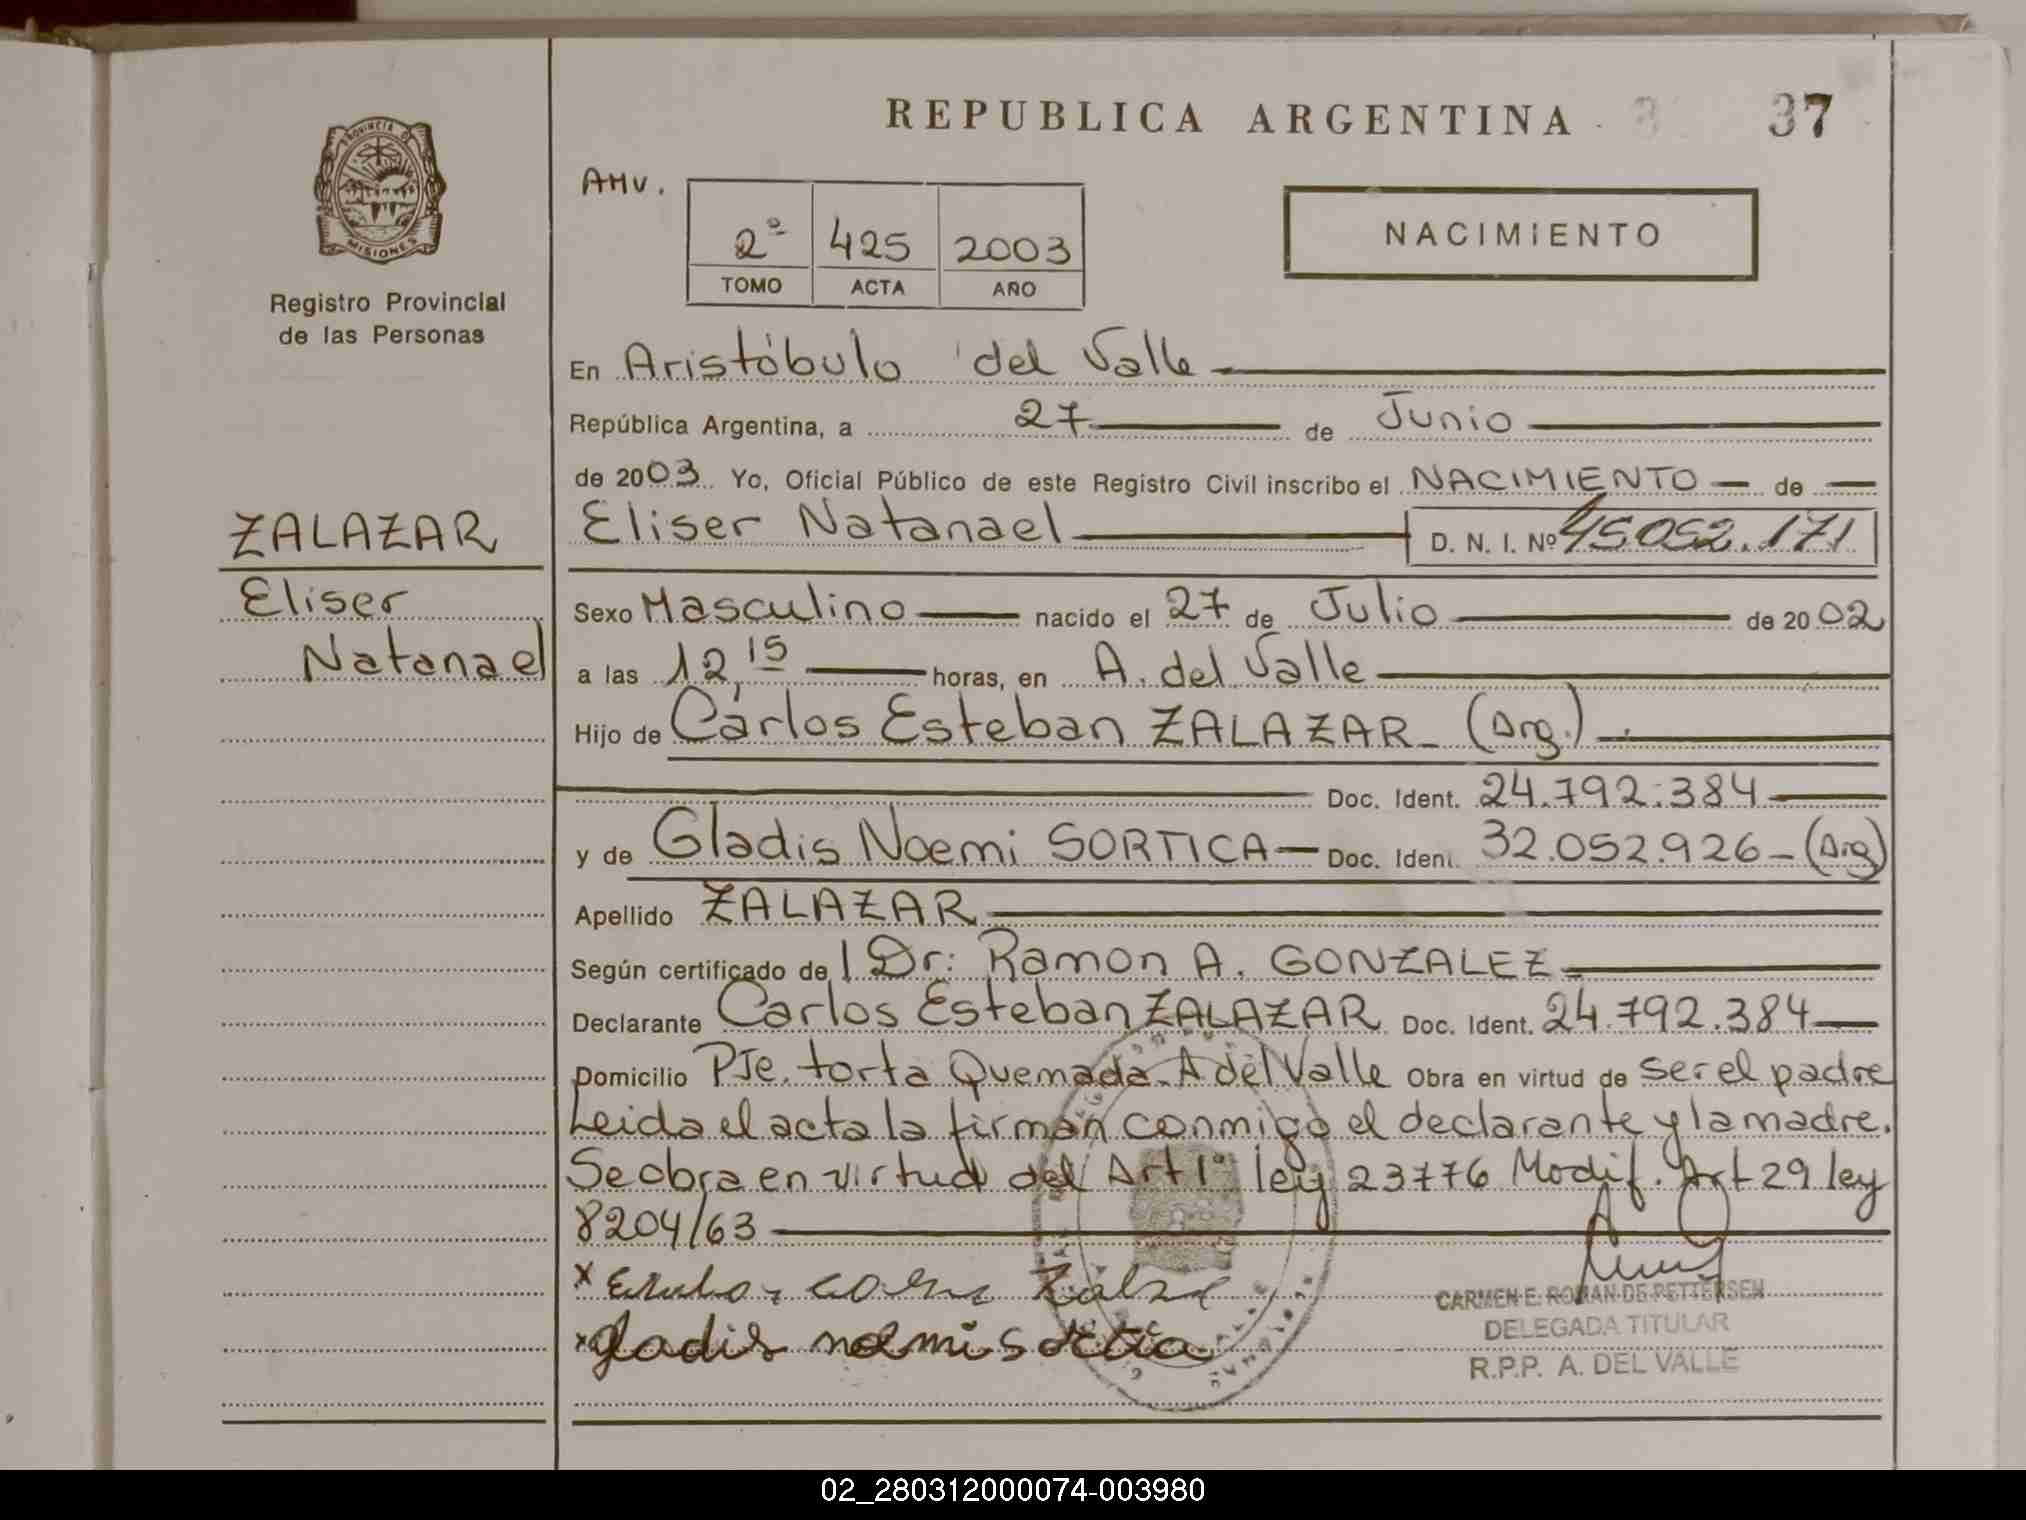 REPUBLICA ARGENTINA 37
PROVINCIA DE
MISIONES
Registro Provincial
de las Personas
AMV.
2º 425 2003
TOMO ACTA AÑO
NACIMIENTO
En Aristóbulo del Valle
República Argentina, a 27 de Junio
de 2003 Yo, Oficial Público de este Registro Civil inscribo el NACIMIENTO de
ZALAZAR
Eliser
Natanael
Eliser Natanael D. N. I. Nº 45052.171
Sexo Masculino nacido el 27 de Julio de 2002
a las 12,15 horas, en A. del Valle
Hijo de Carlos Esteban ZALAZAR (Arg.)
Doc. Ident. 24.792.384
y de Gladis Noemi SORTICA Doc. Ident. 32.052.926 (Arg)
Apellido ZALAZAR
Según certificado de l Dr: Ramon A. GONZALEZ
Declarante Carlos Esteban ZALAZAR Doc. Ident. 24.792.384
Domicilio Pje. torta Quemada. A del Valle Obra en virtud de ser el padre
Leida el acta la firman conmigo el declarante y la madre.
Se obra en virtud del Art 1º ley 23776 Modif. Art 29 ley
8204/63
x
x gladis noemi sortica
CARMEN E. ROMAN DE PETTERSEN
DELEGADA TITULAR
R.P.P. A. DEL VALLE
02_280312000074-003980